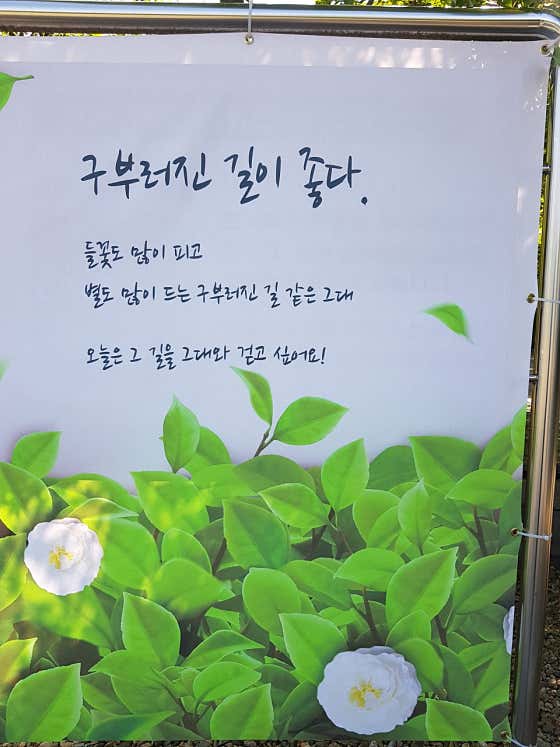 구부러진 길이 좋다.
들꽃도 많이 피고
별도 많이 드는 구부러진 길 같은 그대
오늘은 그 길을 그대와 걷고 싶어요!